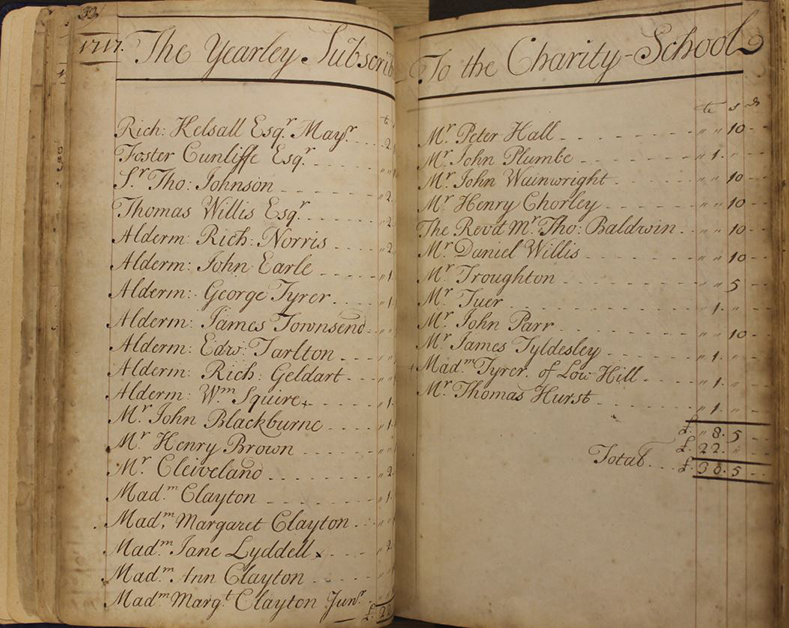 33
1717. The Yearley Subscrib
Rich: Kelsall Esqr. Mayr. 2
Foster Cunliffe Esqr.
Sr Tho: Johnson 2
Thomas Willis Esqr. 2
Alderm: Rich: Norris 2
Alderm: John Earle 1
Alderm: George Tyrer 1
Alderm: James Townsend
Alderm: Edw: Tarlton
Alderm: Rich: Geldart
Alderm: Wm Squire 1
Mr John Blackburne 1
Mr Henry Brown
Mr. Cleiveland 2
Madm Clayton 1
Madm. Margaret Clayton
Madm. Jane Lyddell x 2
Madm. Ann Clayton
Madm Margt Clayton Junr.
£
To the Charity-School
s d
Mr Peter Hall " " 10
Mr. John Plumbe " 1 "
Mr John Wainwright " " 10
Mr Henry Chorley " " 10
The Revd Mr Tho: Baldwin " " 10
Mr Daniel Willis " " 10
Mr Troughton " " 5
Mr Tuer 1
Mr John Parr " " 10
Mr James Tyldesley " 1 "
Madm Tyrer of Low Hill " 1 "
Mr Thomas Hurst " 1 "
£ " 8. 5
£. 22
Total £ 30. 5